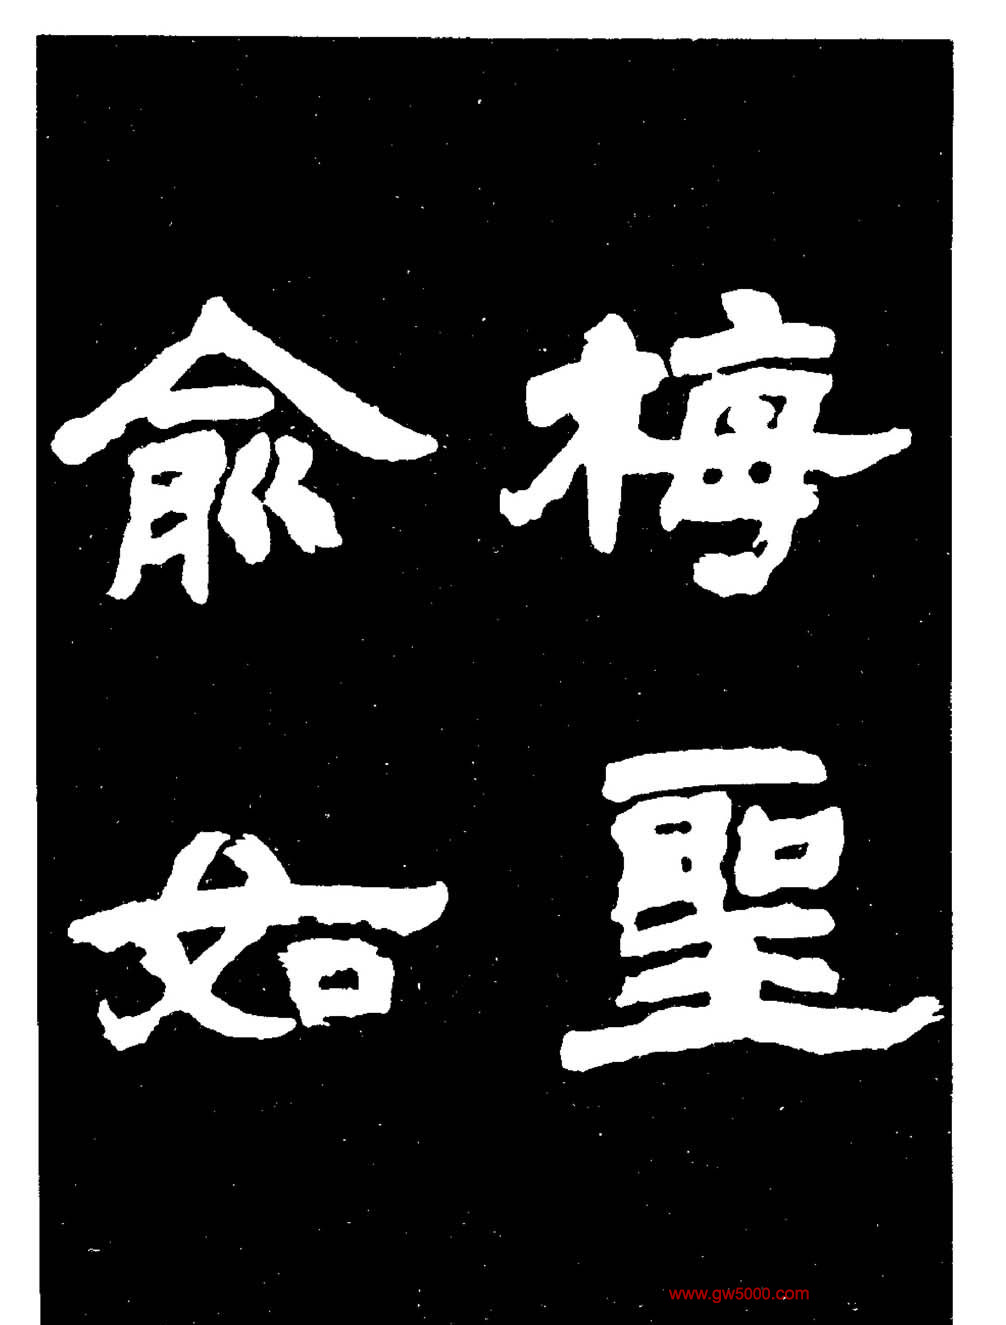 梅聖
俞如
www.gw5000.com